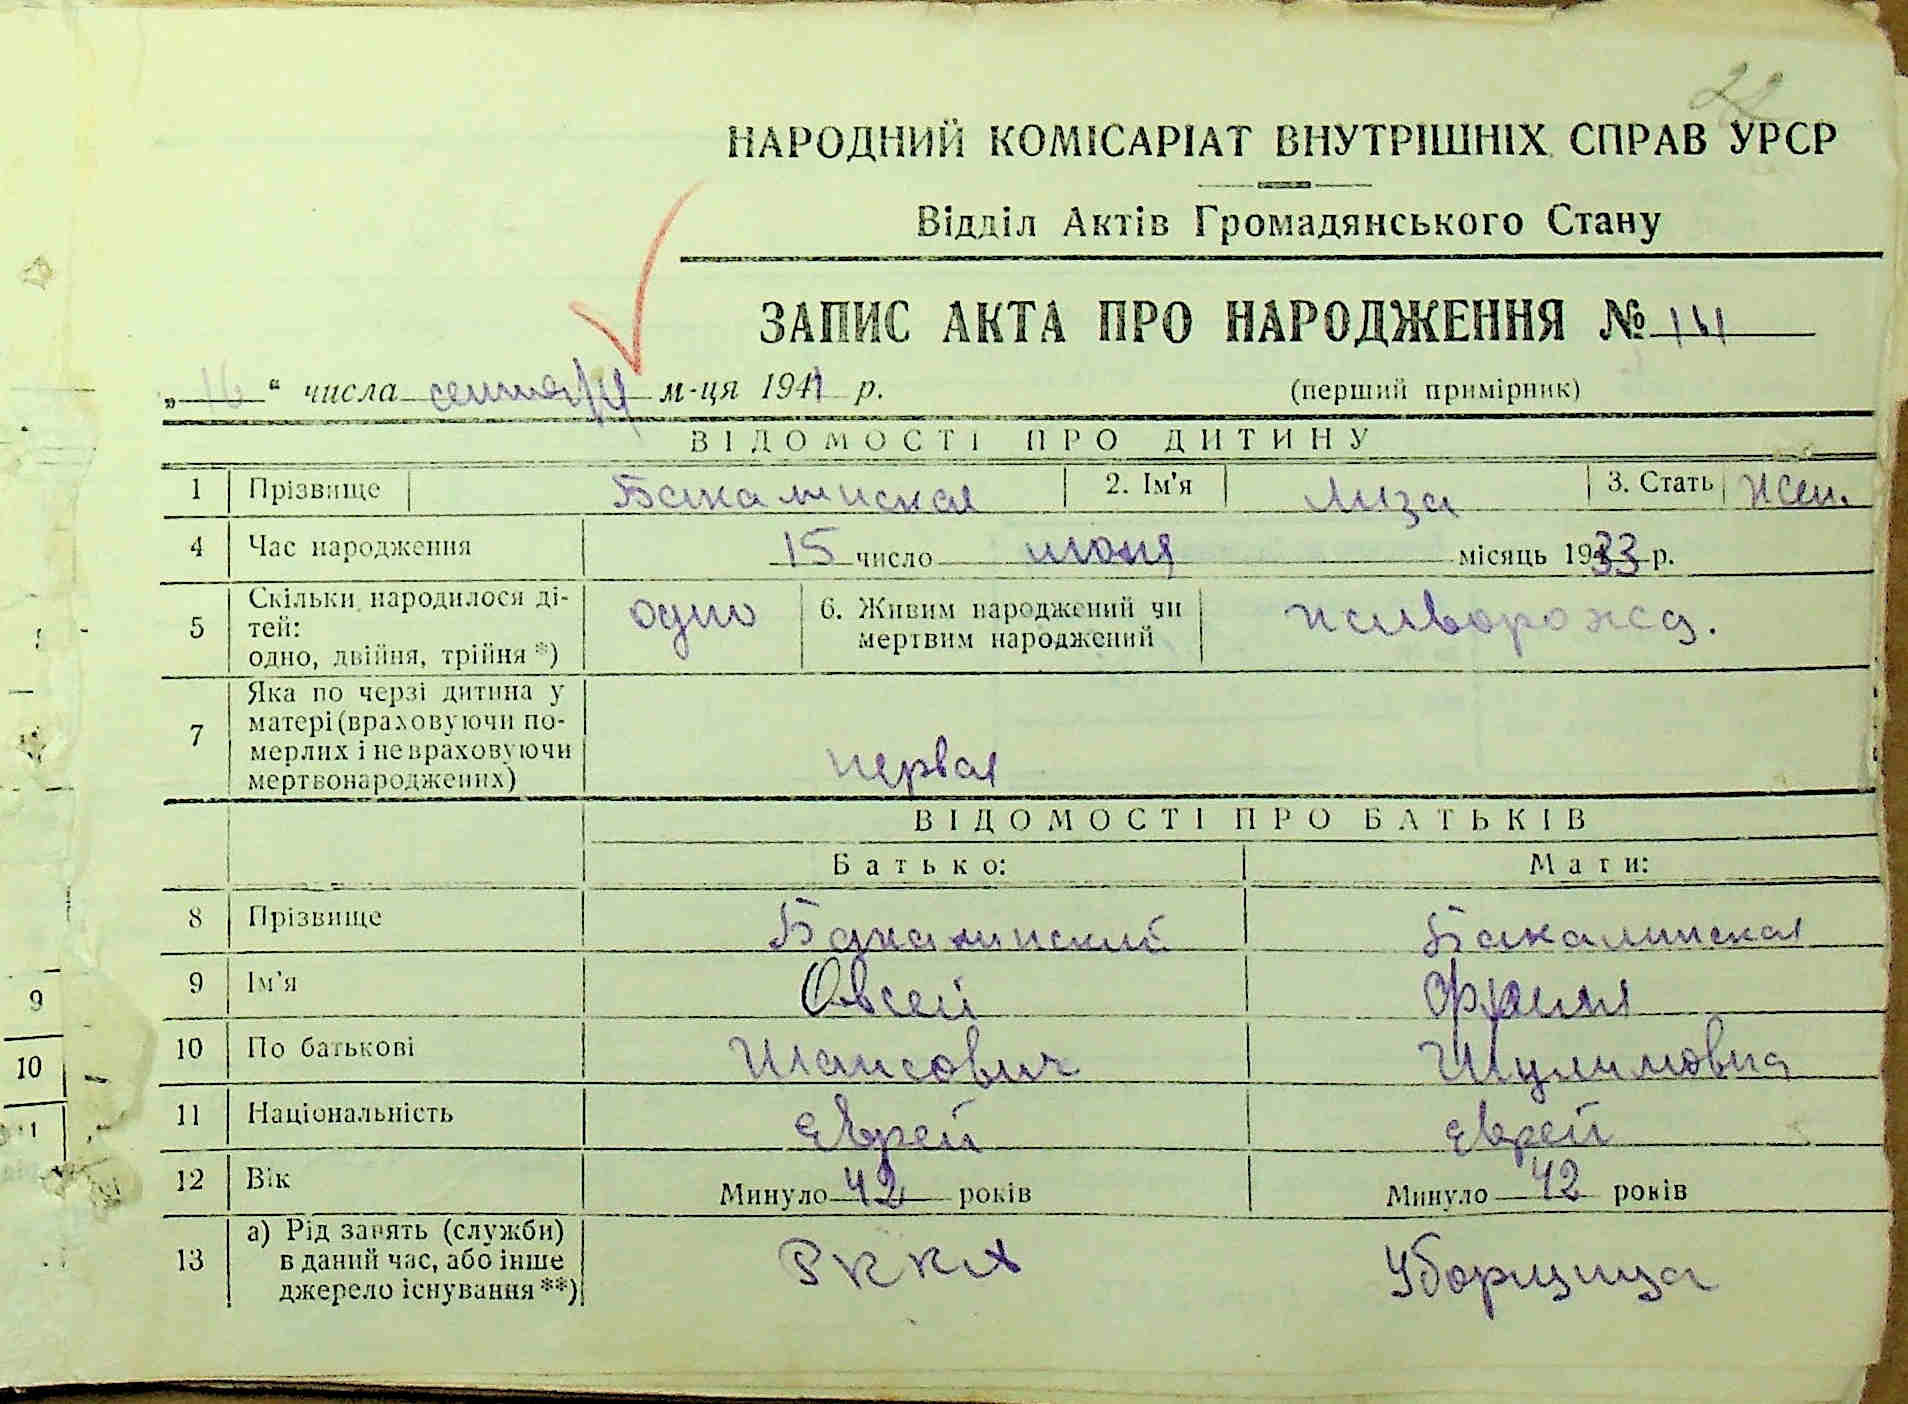 22
НАРОДНИЙ КОМІСАРІАТ ВНУТРІШНІХ СПРАВ УРСР
Відділ Актів Громадянського Стану
ЗАПИС АКТА ПРО НАРОДЖЕННЯ №
„16“ числа сентября м-ця 1941 р. (перший примірник)
ВІДОМОСТІ ПРО ДИТИНУ
1 Прізвище Бакалинская 2. Ім'я Лиза 3. Стать жен.
4 Час народження 15 число июня місяць 1933 р.
5 Скільки народилося ді-
тей:
одно, двійня, трійня *) одно 6. Живим народжений чи
мертвим народжений живорожд.
7 Яка по черзі дитина у
матері (враховуючи по-
мерлих і невраховуючи
мертвонароджених) первая
ВІДОМОСТІ ПРО БАТЬКІВ
Батько: Мати:
8 Прізвище Бакалинский Бакалинская
9 Ім'я Овсей Фаина
10 По батькові Шулимовна
11 Національність Еврей еврей
12 Вік Минуло 42 років Минуло 42 років
13 а) Рід занять (служби)
в даний час, або інше
джерело існування **) РККА Уборщица
9
10